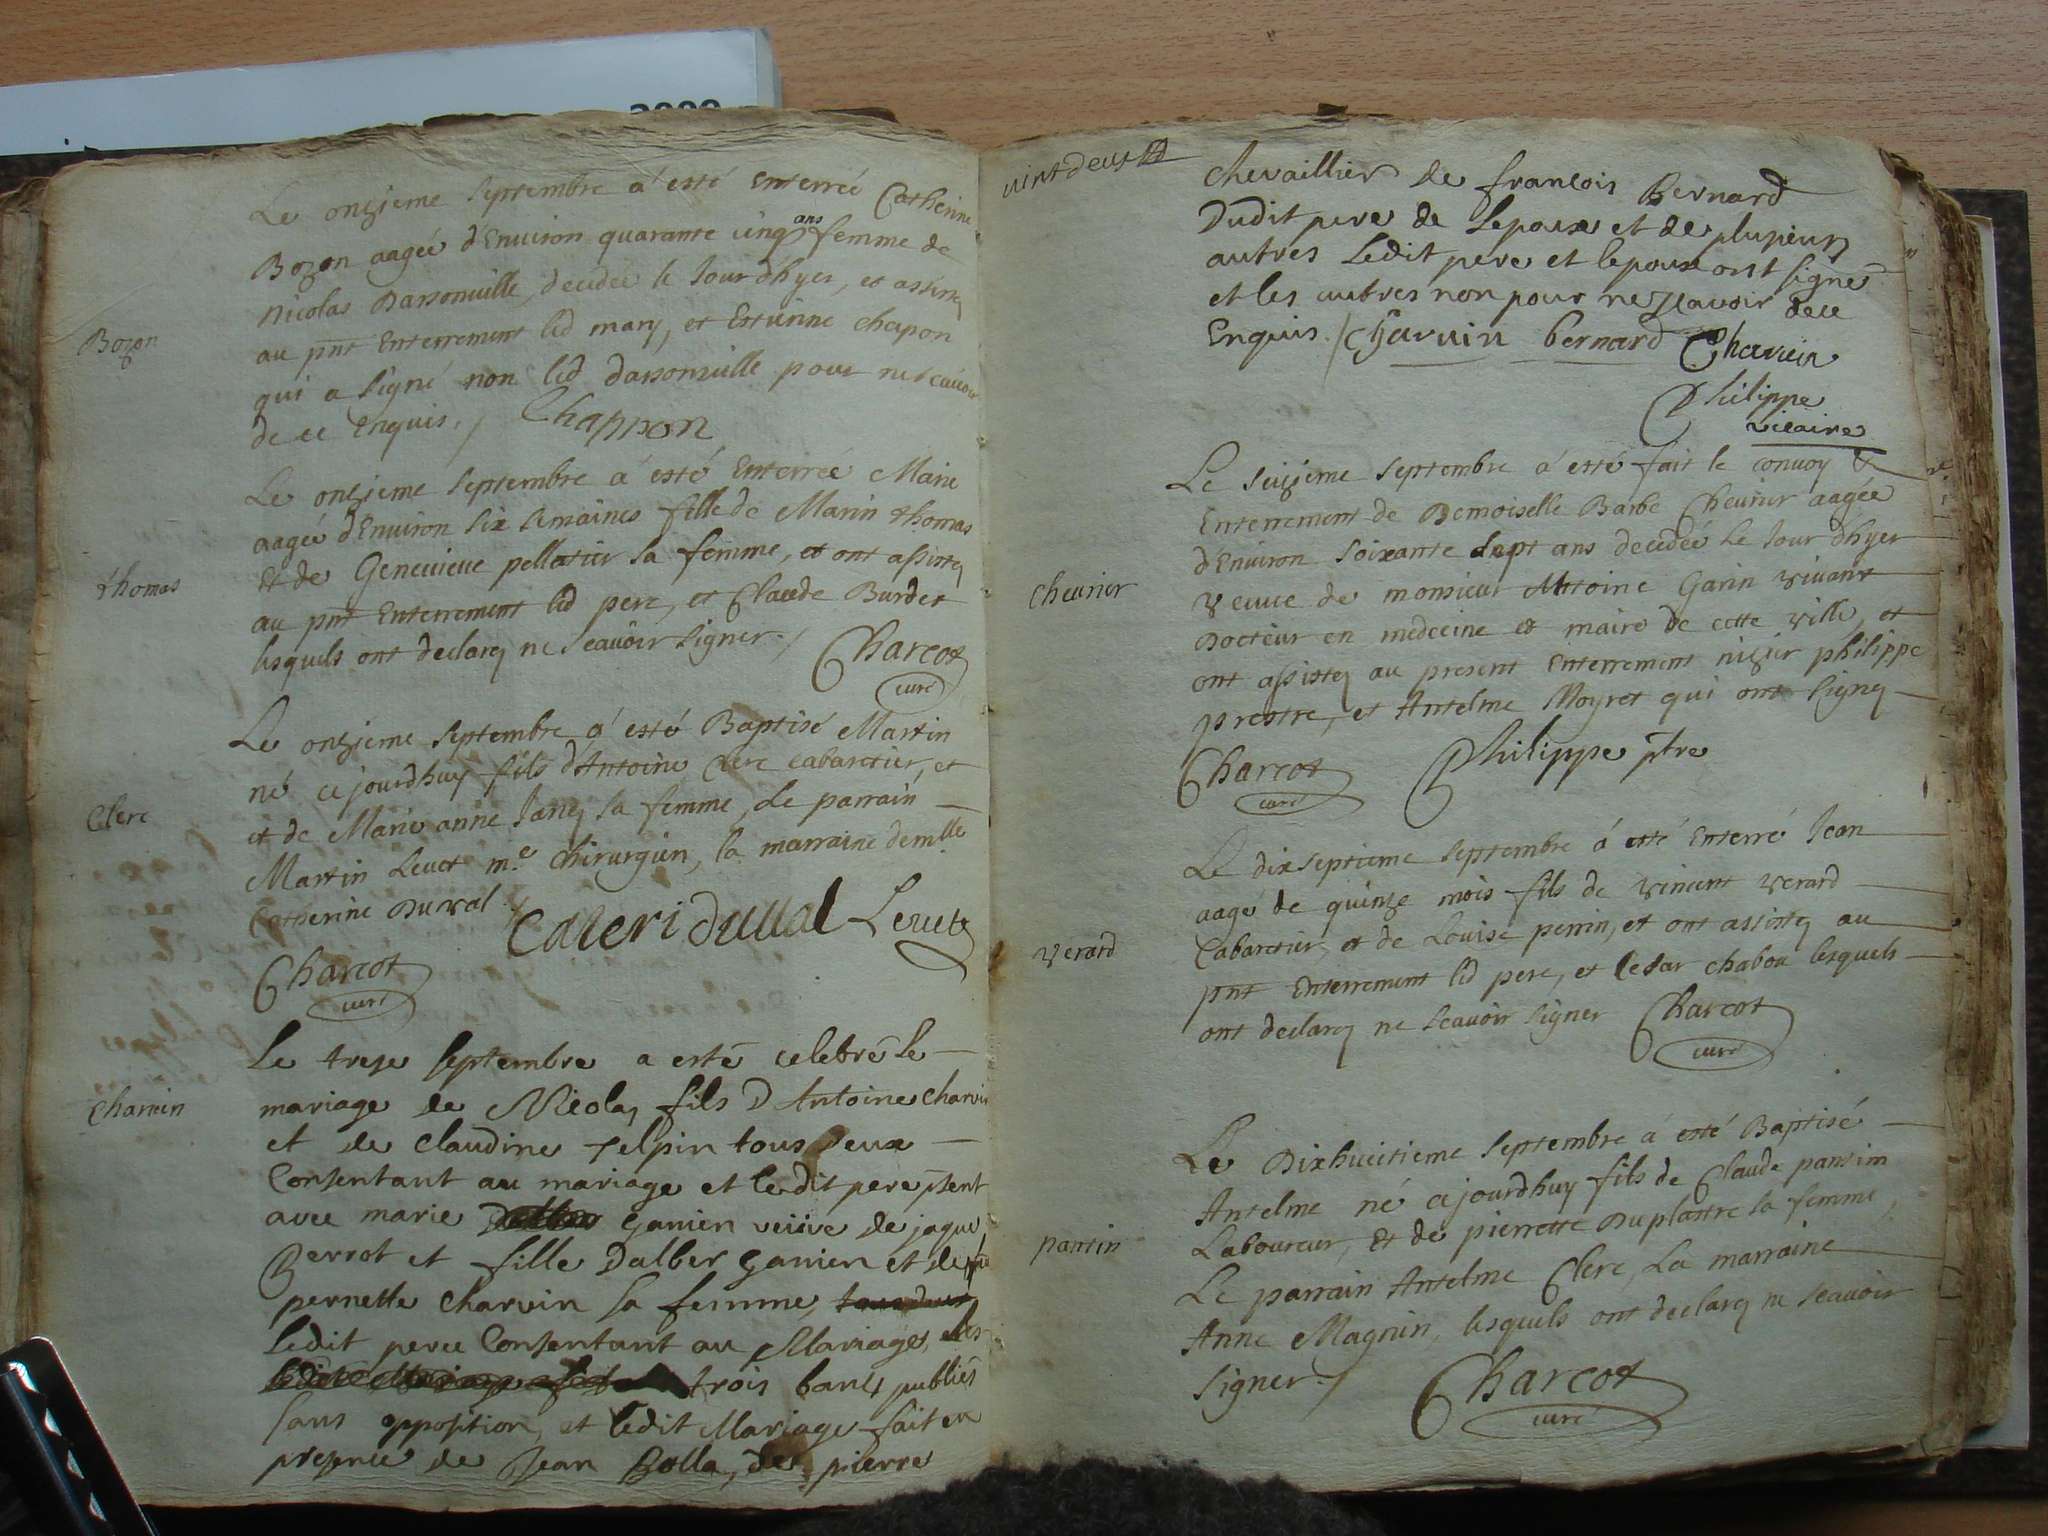 Le onzieme Septembre a esté Enterrée Catherine
Bozon aagée d'Environ quarante cinq ans femme de
Bozon
Nicolas Darsonuille, decedée le Jour dhyer, et assistez
au pnt Enterrement led mary, et Estienne chapon
qui a signé non led darsonuille pour ne scauoir
de ce Enquis./ Chappon
Le onzieme Septembre a esté Enterrée Marie
aagée d'Environ six semaines fille de Marin thomas
thomas
Et de Geneuieue pelletier sa femme, et ont assistez
au pnt Enterrement led pere, et Claude Burdet
lesquels ont declarez ne Scauoir signer./ Charcot
curé
Le onzieme Septembre a esté Baptisé Martin
né cejourdhuy fils d'Antoine Clerc cabaretier, et
Clerc
et de Marie anne Janez sa femme, Le parrain
Martin Leuet me. chirurgien, la marraine demlle
Catherine Duval./
Cateri duual Leuet
Charcot
curé
Le treze Septembre a esté celebré le
Charuin
mariage de Nicolaz fils D Antoine Charvin
et de Claudine telpin tous deux
Consentant au mariage et ledit pere psent
avec marie ganien veüve de jaque
Berrot et fille Dalber ganien et de
pernette Charvin sa femme,
ledit pere Consentant au Mariage, les
trois bans publiés
sans opposition, et ledit Mariage fait en
presence de Jean Bolla, de pierre
vint deux
Chevaillier de françois Bernard
Dudit pere de lepoux et de plusieurs
autres Ledit pere et lepoux ont signé
et les autres non pour ne scavoir dece
Enquis./ Charuin bernard Charvin
Philippe
vicaire
Le seizieme Septembre a esté fait le convoy &
Enterrement de Demoiselle Barbe Cheurier aagée
d'Environ soixante sept ans decedée le Jour d'hyer
cheurier
veuue de monsieur Antoine Garin vivant
Docteur en medecine et maire de cette ville, et
ont assistez au present Enterrement nizier philippe
prestre, et Antelme Moyret qui ont signez
Charcot Philippe ptre
curé
Le dixseptieme Septembre a esté Enterré Jean
aagé de quinze mois fils de vincent verard
verard
Cabaretier, et de Louise perrin, et ont assistez au
pnt Enterrement led pere, et Cesar chabou lesquels
ont declarez ne Scauoir signer Charcot
curé
Le Dixhuitieme Septembre a esté Baptisé
Antelme né cejourdhuy fils de Claude pansin
pansin
Laboureur, Et de pierrette Duplastre sa femme,
Le parrain Antelme Clerc, La marraine
Anne Magnin, lesquels ont declarez ne Scauoir
signer./
Charcot
curé